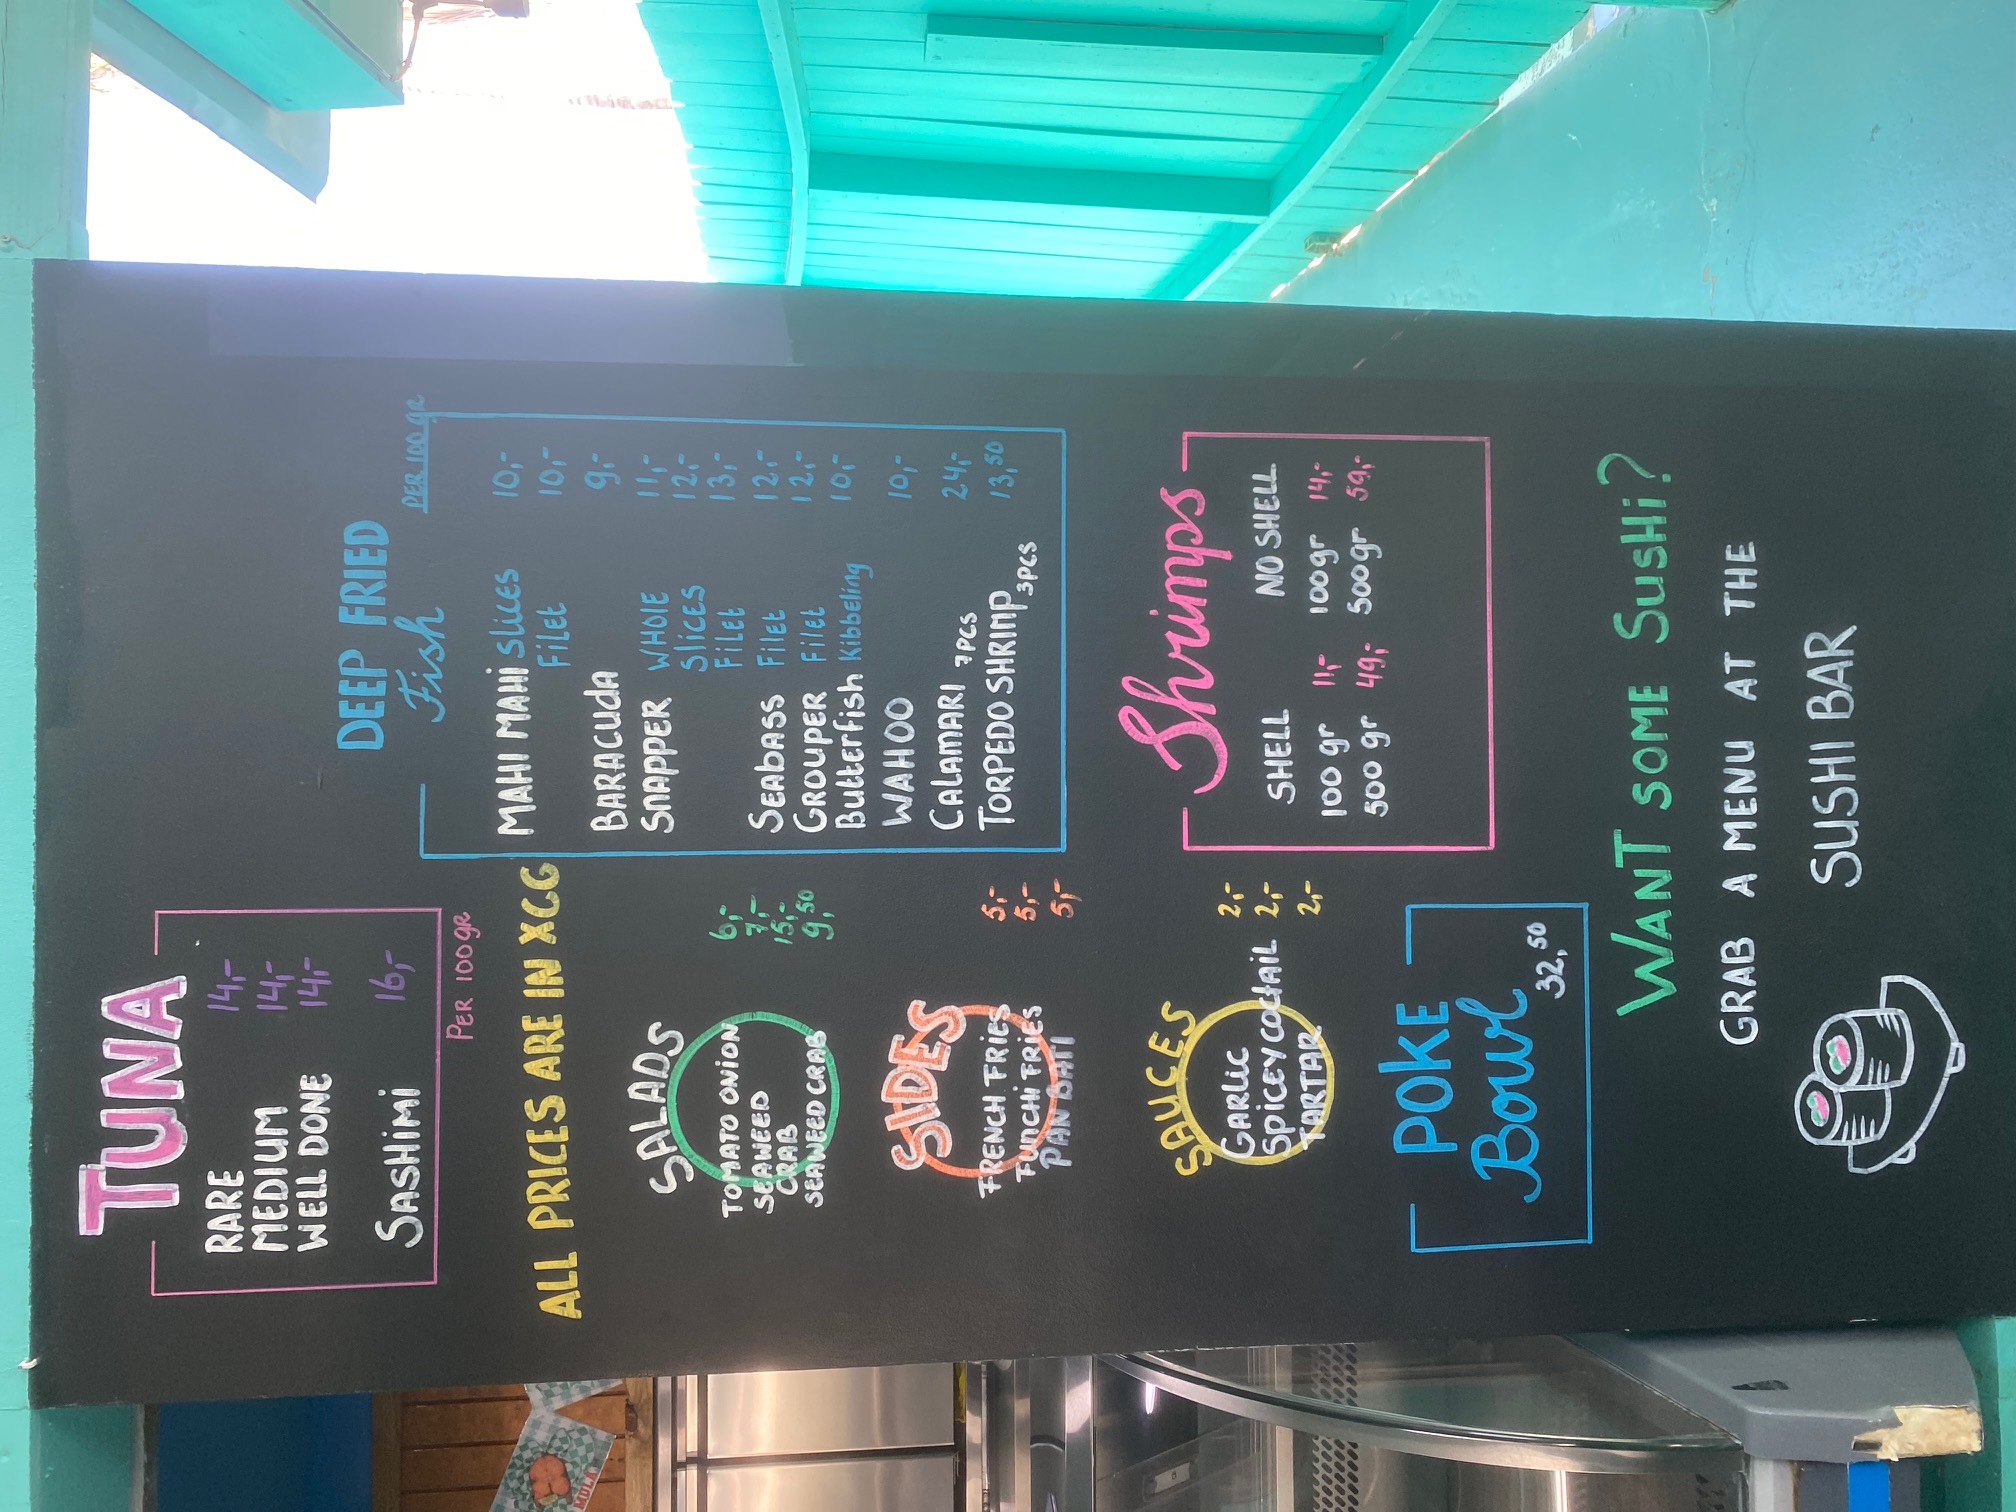 TUNA
RARE 14,-
MEDIUM 14,-
WELL DONE 14,-
SASHIMI 16,-
PER 100gR
ALL PRICES ARE IN XCG
SALADS
TOMATO ONION 6,-
SEAWEED 7,-
CRAB 15,-
SEAWEED CRAB 9,50
SIDES
FRENCH FRIES 5,-
FUNCHI FRIES 5,-
PAN BATI 5,-
SAUCES
GARLIC 2,-
SPICEY COCTAIL 2,-
TARTAR 2,-
POKE
Bowl
32,50
DEEP FRIED
Fish PER 100 gR
MAHI MAHI Slices 10,-
Filet 10,-
BARACUdA 9,-
SNAPPER WHOLE 11,-
Slices 12,-
Filet 13,-
SEABASS Filet 12,-
GROUPER Filet 12,-
Butterfish Kibbeling 10,-
WAHOO 10,-
CALAMARI 7PCS 24,-
TORPEDO SHRIMP 3PCS 13,50
Shrimps
SHELL NO SHELL
100 gr 11,- 100gr 14,-
500 gr 49,- 500gr 59,-
WANT SOME SusHi?
GRAB A MENU AT THE
SUSHI BAR
MULA